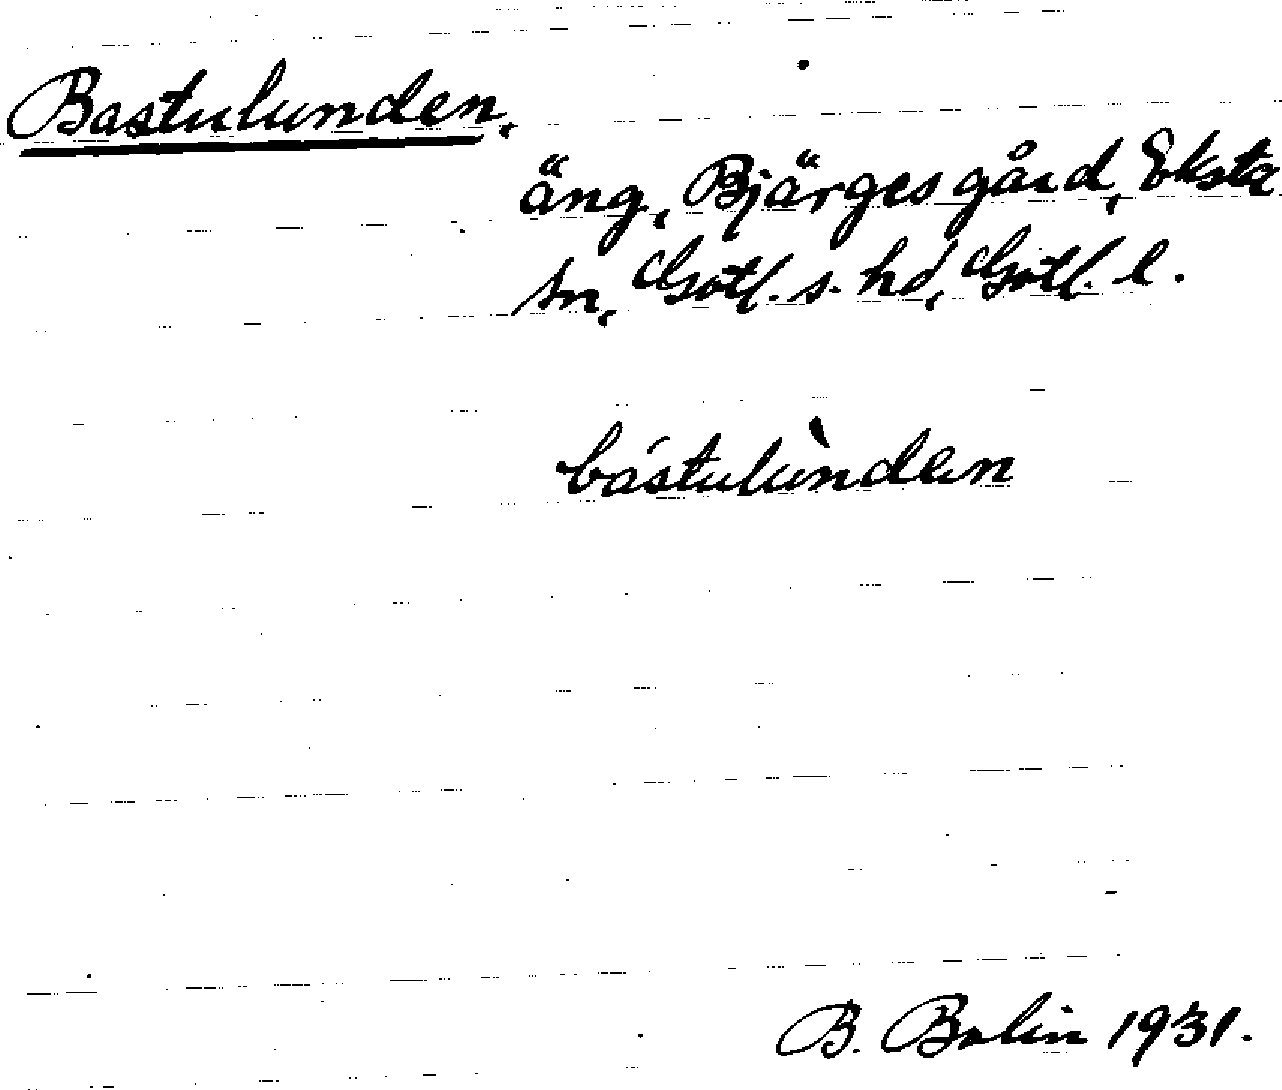 Bastulunden.
äng, Bjärges gård, Eksta
sn, Gotl. s. hd, Gotl. l.
bástulùnden
B. Bolin 1931.